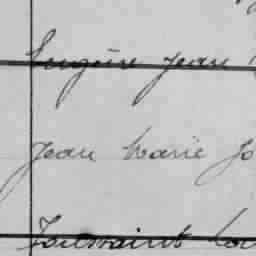 Eugène Jean
Jean Marie Jo
Toussaint Lou